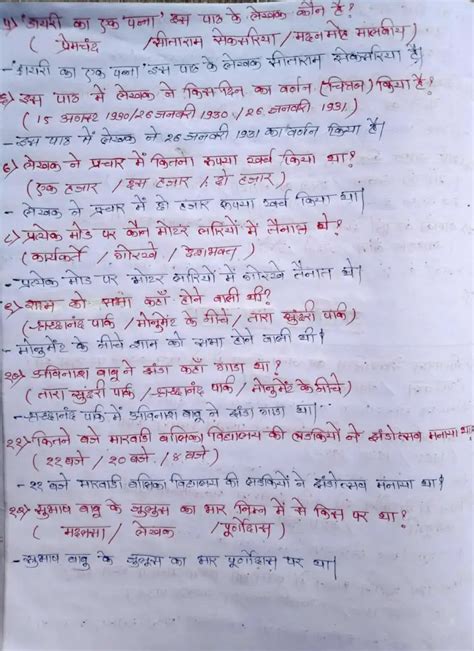 ४) 'डायरी का एक पन्ना' इस पाठ के लेखक कौन है?
( प्रेमचंद / सीताराम सेकसरिया / मदनमोह मालवीय )
- 'डायरी का एक पन्ना' इस पाठ के लेखक सीताराम सेकसरिया है।
५) इस पाठ में लेखक ने किस दिन का वर्णन (चित्रन) किया है?
( 15 अगस्ट 1990 / 26 जनवरी 1930 / 26 जनवरी 1931)
- इस पाठ में लेखक ने 26 जनवरी 1931 का वर्णन किया है।
६) लेखक ने प्रचार में कितना रूपया खर्च किया था?
(एक हजार / दस हजार / दो हजार)
- लेखक ने प्रचार में दो हजार रूपया खर्च किया था।
८) प्रत्येक मोड पर कौन मोटर लारियों में तैनात थे?
(कार्यकर्ते / गोरखे / देशभक्त)
- प्रत्येक मोड पर मोटर लारियों में गोरखे तैनात थे।
९) शाम को सभा कहाँ होने वाली थी?
(श्रद्धानंद पार्क / मोनुमेंट के नीचे / तारा सुंदरी पार्क)
- मोनुमेंट के नीचे शाम को सभा होने वाली थी।
१०) अविनाश बाबू ने झंडा कहाँ गाडा था?
( तारा सुंदरी पार्क / श्रद्धानंद पार्क / मोनुमेंट के नीचे)
- श्रद्धानंद पार्क में अविनाश बाबू ने झंडा गाडा था।
११) कितने बजे मारवाडी बालिका विद्यालय की लडकियों ने झंडोत्सव मनाया था?
( ११ बजे / १० बजे / ४ बजे )
- ११ बजे मारवाडी बालिका विद्यालय की लडकियों ने झंडोत्सव मनाया था।
१२) सुभाष बाबू के जुलूस का भार निम्न में से किस पर था?
( / लेखक / पूर्णोदास)
- सुभाष बाबू के जुलूस का भार पूर्णोदास पर था।